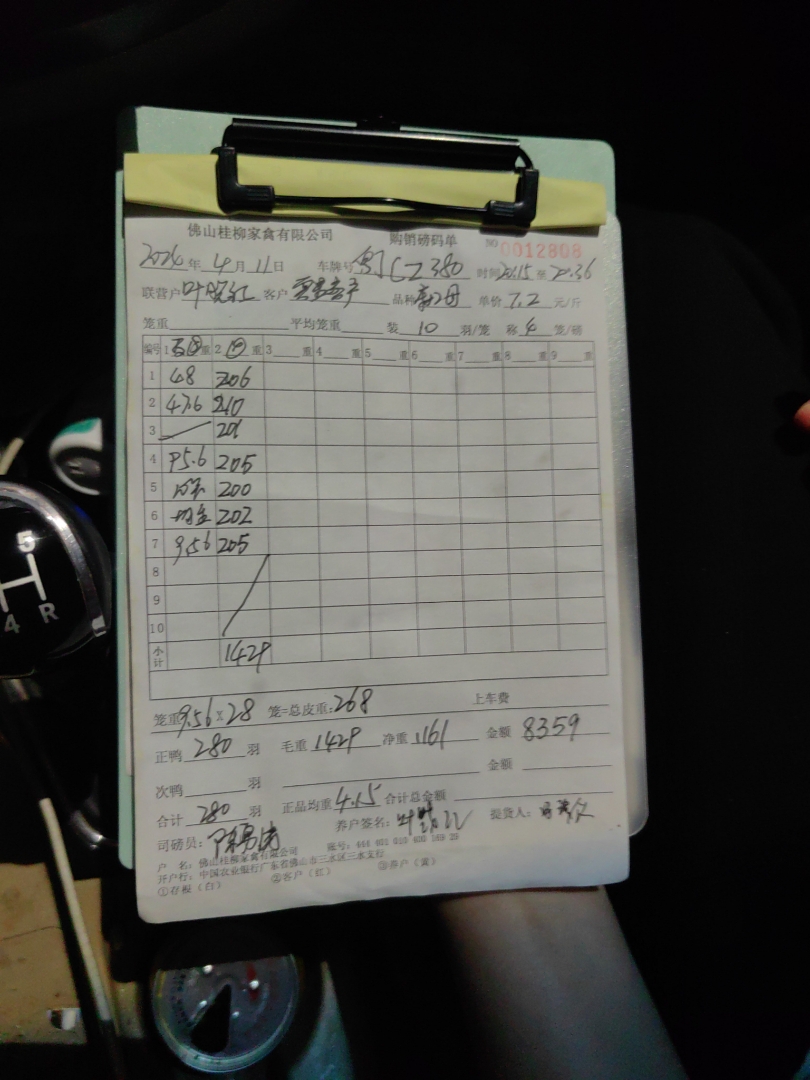 佛山桂柳家禽有限公司 购销磅码单 NO 0012808
年 4 月 11 日 车牌号 粤CZ380 时间 20.15 至 20.36
联营户 叶 客户 品种 单价 7.2 元/斤
笼重 平均笼重 装 10 羽/笼 称 4 笼/磅
编号 1 重 2 重 3 重 4 重 5 重 6 重 7 重 8 重 9 重
1 48 206
2 47.6 210
3 201
4 95.6 205
5 200
6 202
7 9.56 205
8
9
10
小计 1429
笼重 9.56 x 28 笼=总皮重: 268 上车费
正鸭 280 羽 毛重 1429 净重 1161 金额 8359
次鸭 羽 金额
合计 280 羽 正品均重 4.15 合计总金额
司磅员: 养户签名: 提货人:
户 名: 佛山桂柳家禽有限公司 账号:
开户行: 中国农业银行广东省佛山市三水区三水支行
①存根（白） ②客户（红） ③养户（黄）
5
4 R